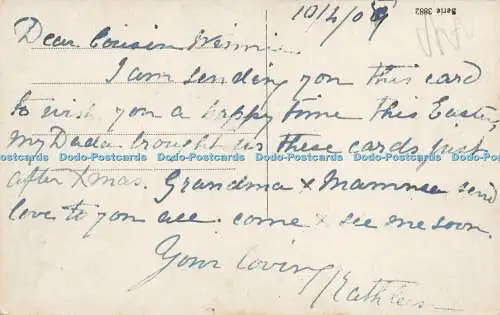 10/4/09
Serie 3882
Dear Cousin Winnie
I am sending you this card
to wish you a happy time this Easter
my Dada brought us these cards just
Dodo-Postcards Dodo-Postcards Dodo-Postcards Dodo-Postcards Dodo-Postcards
after Xmas. Grandma & Mamma send
love to you all. come & see me soon.
Your loving
Kathleen